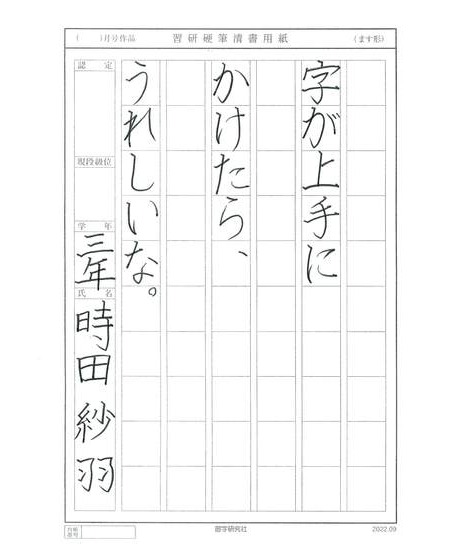 （　　）月号作品
習研硬筆清書用紙
（ます形）
字が上手に
かけたら、
うれしいな。
認　定
現段級位
学　年
三年
氏　名
時田紗羽
習字研究社
2022.09